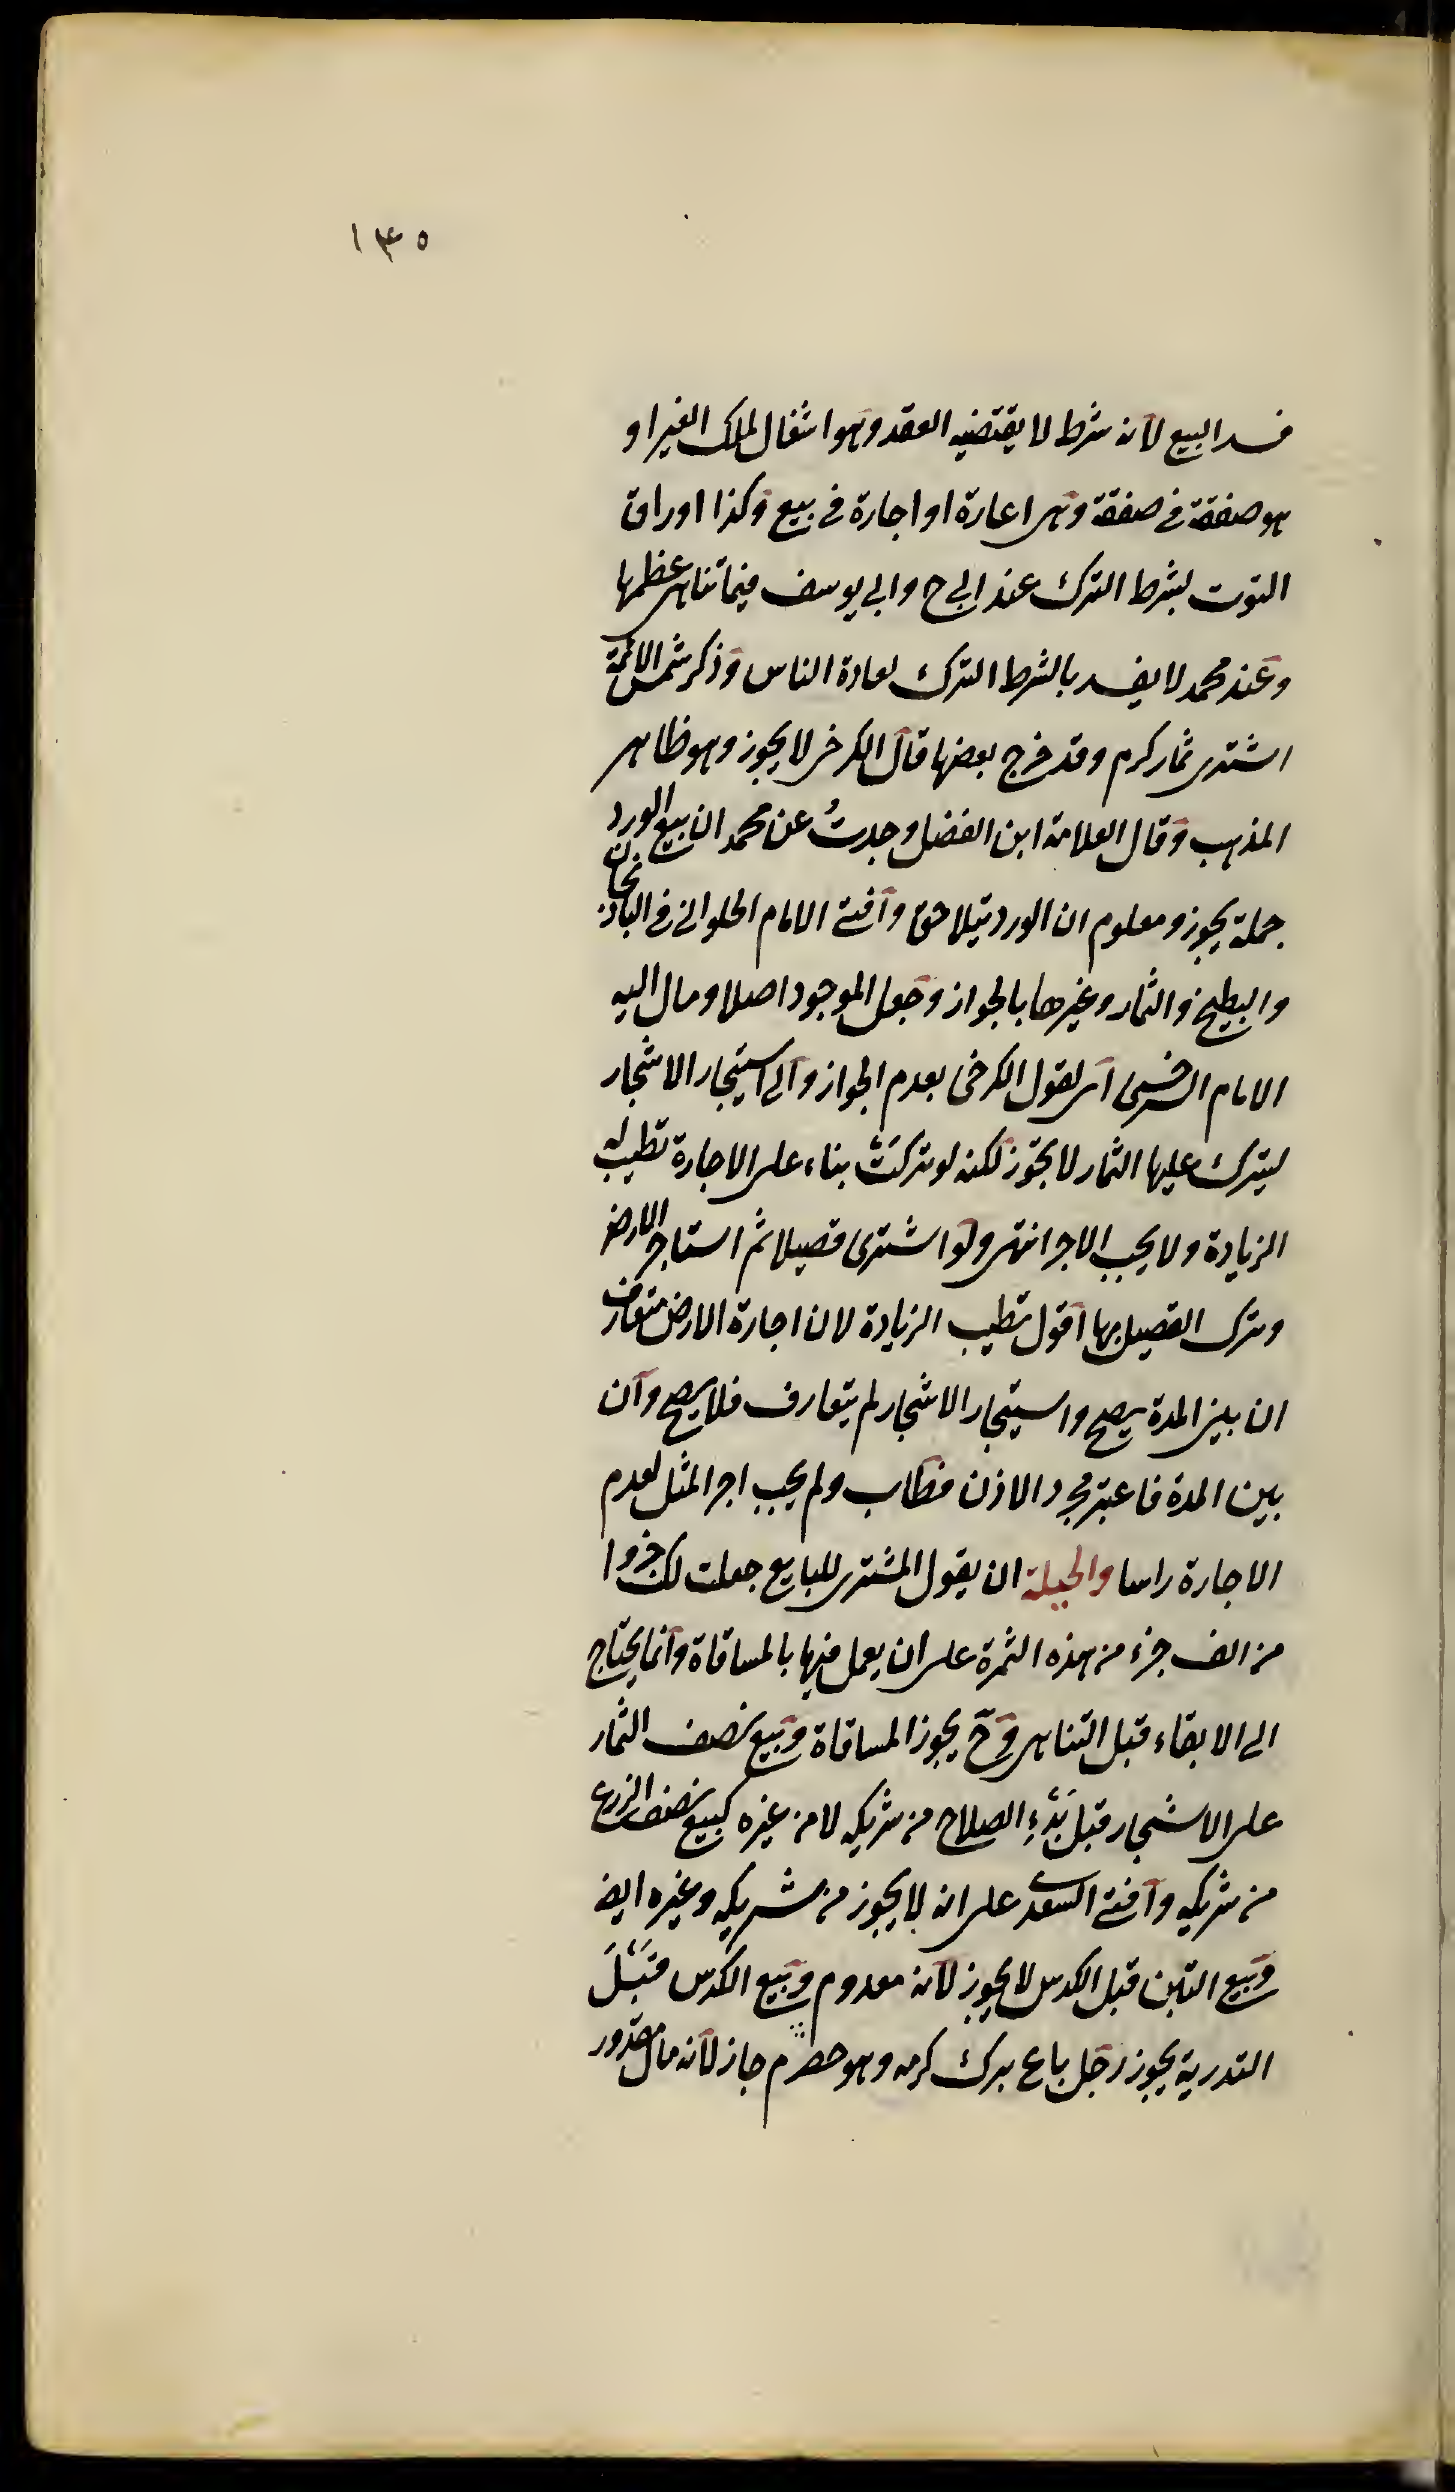 ١٣٥
فسد البيع لانه شرط لا يقتضيه العقد وهو اشغال لملك الغير او
هو صفقة في صفقة وهى اعارة او اجارة في بيع وكذا اوراق
التوت بشرط الترك عند ابى ح وابى يوسف فيما تناهى عظمها
وعند محمد لا يفسد بالشرط الترك لعادة الناس وذكر شمس الائمة
اشترى ثمار كرم وقد خرج بعضها قال الكرخى لا يجوز وهو ظاهر
المذهب وقال العلامة ابن الفضل وجدتُ عن محمد ان بيع الورد
جملة يجوز ومعلوم ان الورد يتلاحق وافتى الامام الحلوانى في الباذنجان
والبطيخ والثمار وغيرها بالجواز وجعل الموجود اصلا ومال اليه
الامام السرخسى اى لقول الكرخى بعدم الجواز والى استيجار الاشجار
ليترك عليها الثمار لا يجوز لكنه لو تركت بناء على الاجارة تطيب له
الزيادة ولا يجب الاجر انتهى ولو اشترى قصيلا ثم استاجر الارض
وترك القصيل بها اقول تطيب الزيادة لان اجارة الارض متعارف
ان بين المدة يصح واستيجار الاشجار لم يتعارف فلا يصح وان
بين المدة فاعتبر مجرد الاذن فطاب ولم يجب اجر المثل لعدم
الاجارة راسا والحيلة ان يقول المشترى للبايع جعلت لك جزوا
من الف جزء من هذه الثمرة على ان يعمل فيها بالمساقاة وانما يحتاج
الى الابقاء قبل التناهى وح يجوز المساقاة وبيع نصف الثمار
على الاشجار قبل بَدْءِ الصلاح من شريكه لا من غيره كبيع نصف الزرع
من شريكه وافتى السعدى على انه لا يجوز من شريكه وغيره ايض
وبيع التبن قبل الكدس لا يجوز لانه معدوم وبيع الكدس قَبْلَ
التدرية يجوز رجل باع برك كرمه وهو حصرم جاز لانه مال مقدور